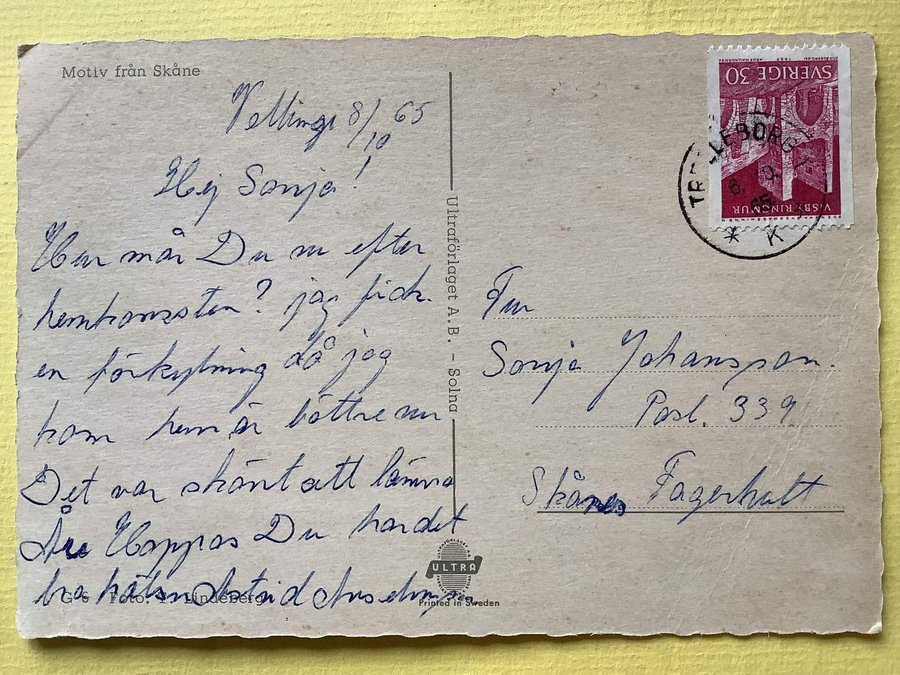 Motiv från Skåne
Vellinge 8/10 65
Hej Sonja!
Hur mår Du nu efter
hemkomsten? jag fick
en förkylning då jag
kom hem är bättre nu
Det var skönt att lämna
Hoppas Du har det
bra hälsn Astrid
G 6 Foto: Lindeberg
Ultraförlaget A.B. - Solna
ULTRA
Printed in Sweden
SVERIGE 30
VISBY RINGMUR
TRELLEBORG 1
65
* K
Fru
Sonja Johansson.
Post. 339
Skånes Fagerhult